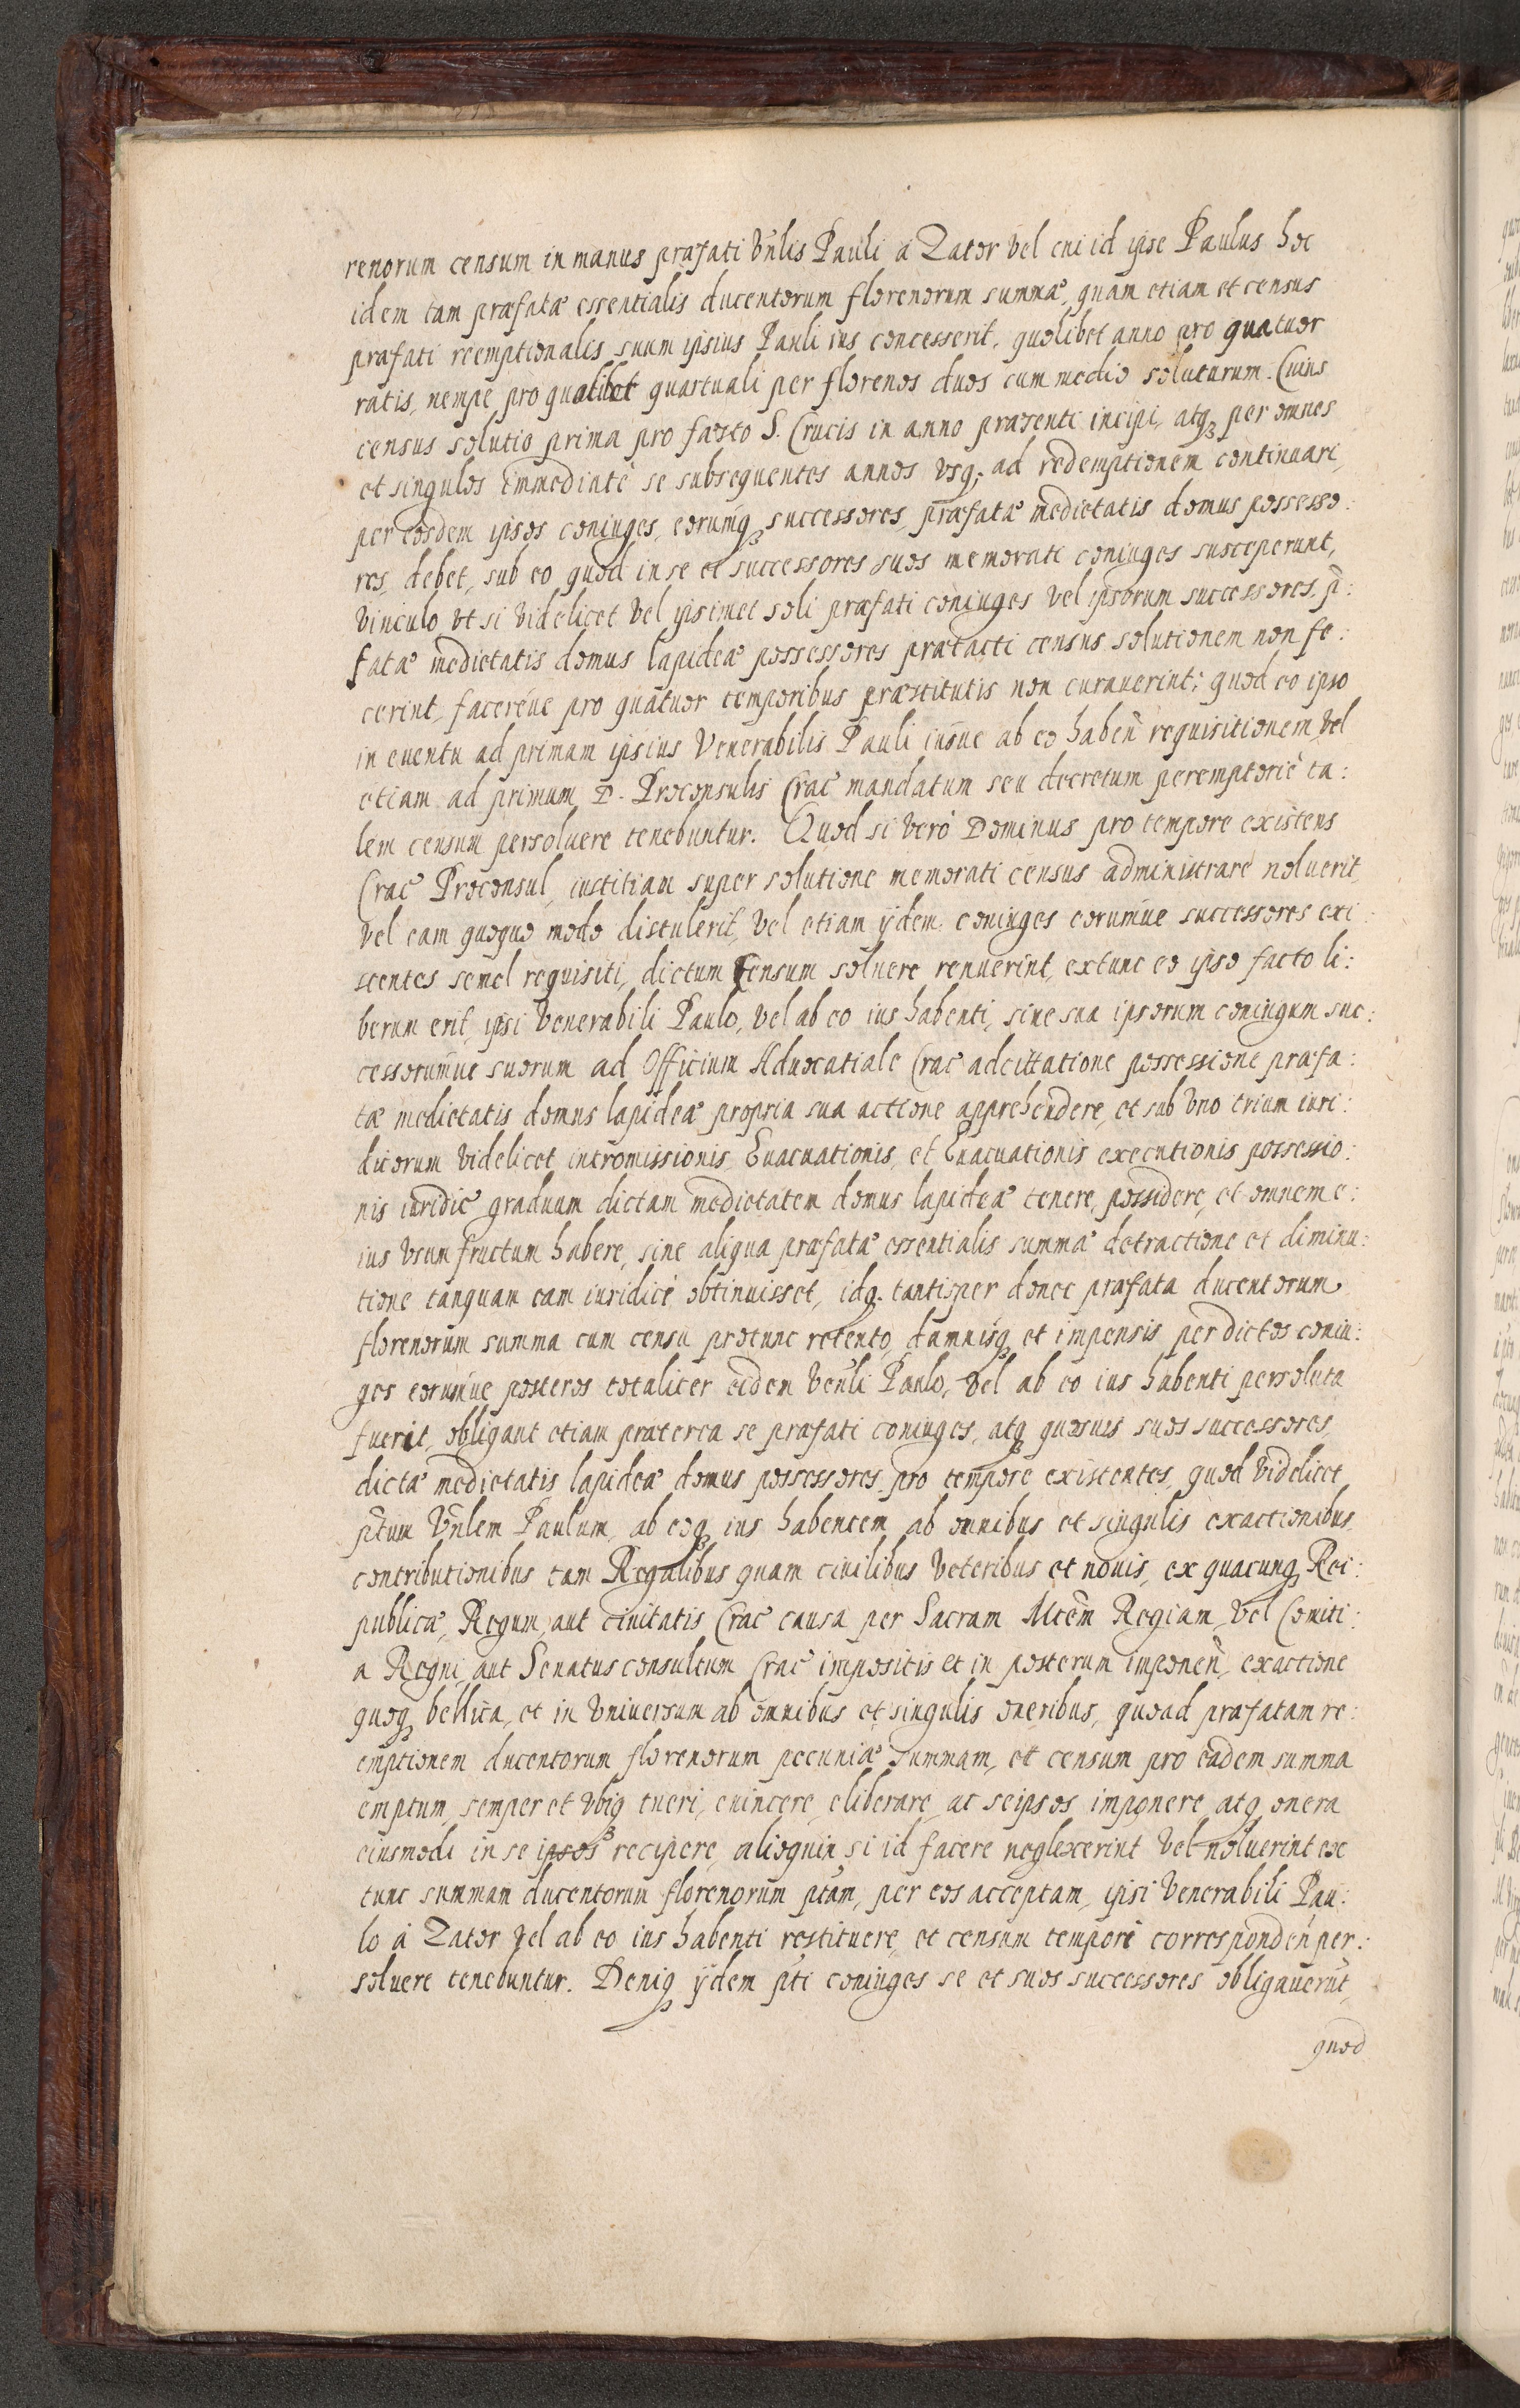 renorum censum in manus præfati Vn̄lis Pauli à Zator vel cui id ipse Paulus hoc
idem tam præfatæ essentialis ducentorum florenorum summæ, quàm etiam et census
præfati reemptionalis suum ipsius Pauli ius concesserit, quolibet anno pro quatuor
ratis, nempe pro qualibet quartuali per florenos duos cum medio soluturum. Cuius
census solutio prima pro faesto S. Crucis in anno præsenti incipi, atqꝫ per omnes
et singulos immediatè se subsequentes annos vsqꝫ ad redemptionem continuari,
per eosdem ipsos coniuges, eorumqꝫ successores, præfatæ medietatis domus possesso:
res, debet, sub eo quod in se et successores suos memorati coniuges susceperunt,
vinculo vt si videlicet vel ipsimet soli præfati coniuges vel ipsorum successores, p̄:
fatæ medietatis domus lapideæ possessores prætacti census solutionem non fe:
cerint, facereúe pro quatuor temporibus præstitutis non curauerint; quod eo ipso
in euentu ad primam ipsius Venerabilis Pauli iusúe ab eo haben̄ requisitionem, vel
etiam ad primum D. Proconsulis Crac̄ mandatum seu decretum peremptoriè ta:
lem censum persoluere tenebuntur. Quod si verò Dominus pro tempore existens
Crac̄ Proconsul, iustitiam super solutione memorati census administrare noluerit,
vel eam quoquo modo distulerit, vel etiam ijdem coniuges eorumúe successores exi:
stentes semel requisiti, dictum Censum soluere renuerint, extunc eo ipso facto li:
berum erit, ipsi Venerabili Paulo, vel ab eo ius habenti, sine sua ipsorum coniugum suc:
cessorumúe suorum ad Officium Aduocatiale Crac̄ adcittatione possessione præfa:
tæ medietatis domus lapideæ propria sua actione apprehendere, et sub vno trium iuri:
dicorum videlicet intromissionis, Euacuationis, et Euacuationis executionis possessio:
nis iuridicē graduum dictam medietatem domus lapideæ tenere, possidere, et omnem e:
ius vsumfructum habere, sine aliqua præfatæ essentialis summæ detractione et diminu:
tione tanquam eam iuridicè obtinuisset, idqꝫ tantisper donec præfata ducentorum
florenorum summa cum censu protunc retento, damnisqꝫ et impensis per dictos coniu:
ges eorumúe posteros totaliter eidem Ven̄li Paulo, vel ab eo ius habenti persoluta
fuerit, obligant etiam præterea se præfati coniuges, atqꝫ quosuis suos successores,
dictæ medietatis lapideæ domus possessores pro tempore existentes, quod videlicet
pt̄um Vn̄lem Paulum, ab eoqꝫ ius habentem ab omnibus et singulis exactionibus,
contributionibus tam Regalibus quam ciuilibus veteribus et nouis, ex quacunqꝫ Rei:
publicæ, Regum, aut ciuitatis Crac̄ causa per Sacram Mtēm Regiam, vel Comiti:
a Regni, aut Senatusconsultum Crac̄ impositis et in posterum imponen̄, exactione
quoqꝫ bellica, et in vniuersum ab omnibus et singulis oneribus, quoad præfatam re:
emptionem ducentorum florenorum pecuniæ summam, et censum pro eadem summa
emptum, semper et vbiqꝫ tueri, euincere, eliberare, ac seipsos imponere, atqꝫ onera
eiusmodi in se ipsos recipere, alioquin si id facere neglexerint vel noluerint ex
tunc summam ducentorum florenorum pt̄am, per eos acceptam, ipsi Venerabili Pau:
lo à Zator vel ab eo ius habenti restituere, et censum tempori corresponden̄ per:
soluere tenebuntur. Deniqꝫ ijdem pt̄i coniuges se et suos successores obligauerūt,
quod